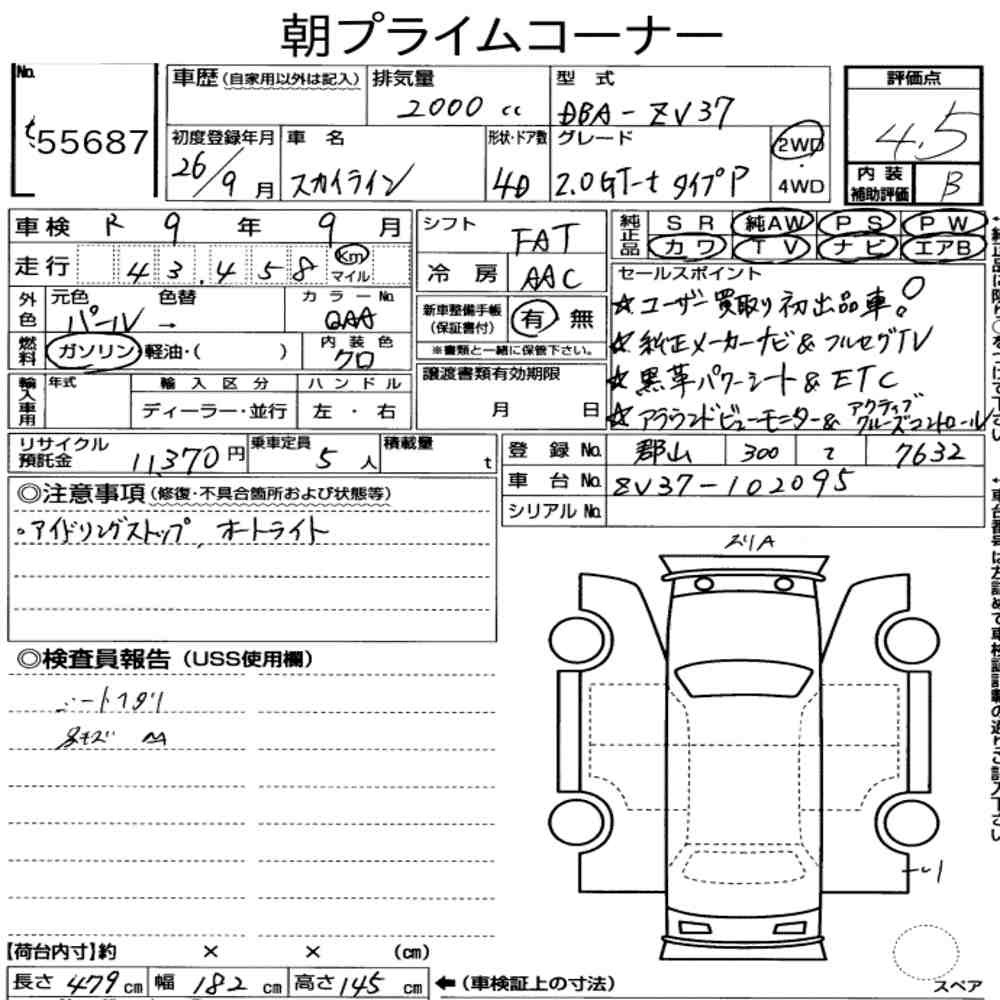 朝プライムコーナー
No.
55687
車歴 (自家用以外は記入)
排気量
2000 cc
型式
DBA-ZV37
評価点
4.5
内装
補助評価
B
初度登録年月
26/9月
車名
スカイライン
形状・ドア数
4D
グレード
2.0GT-t タイプP
2WD
・
4WD
車検 R 9年 9月
走行 43,458 km
マイル
シフト
FAT
冷房
AAC
純正品
SR 純AW PS PW
カワ TV ナビ エアB
外色
元色
パール →
色替
カラーNo.
QAA
燃料
ガソリン・軽油・( )
内装色
クロ
新車整備手帳
(保証書付)
有 無
※書類と一緒に保管下さい。
セールスポイント
☆ユーザー買取り初出品車!
☆純正メーカーナビ&フルセグTV
☆黒革パワーシート&ETC
☆アラウンドビューモニター&アクティブクルーズコントロール
輸入車用
年式
輸入区分
ディーラー・並行
ハンドル
左・右
譲渡書類有効期限
月 日
リサイクル
預託金
11,370円
乗車定員
5人
積載量
t
登録No. 郡山 300 て 7632
車台No. ZV37-102095
シリアルNo.
◎注意事項 (修復・不具合箇所および状態等)
。アイドリングストップ、オートライト
◎検査員報告 (USS使用欄)
シートスリ
【荷台内寸】約 × × (cm)
長さ 479 cm 幅 182 cm 高さ 145 cm ←(車検証上の寸法)
スペア